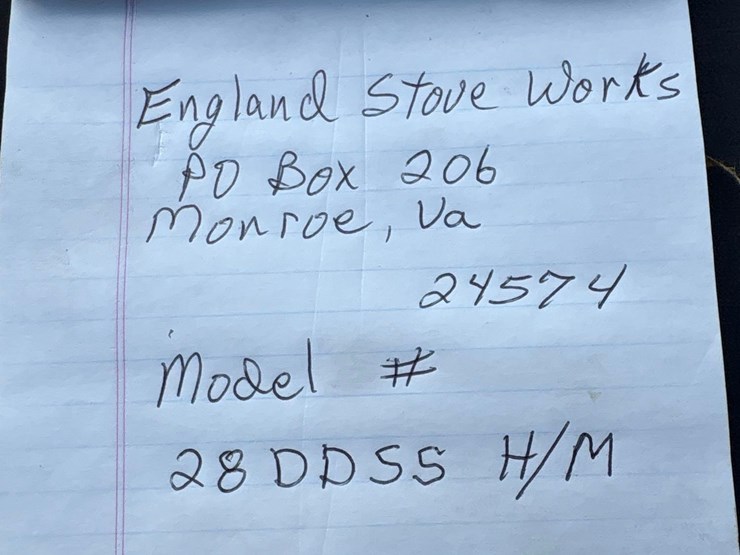 England Stove Works
PO Box 206
Monroe, Va
24574
Model #
28 DDSS H/M